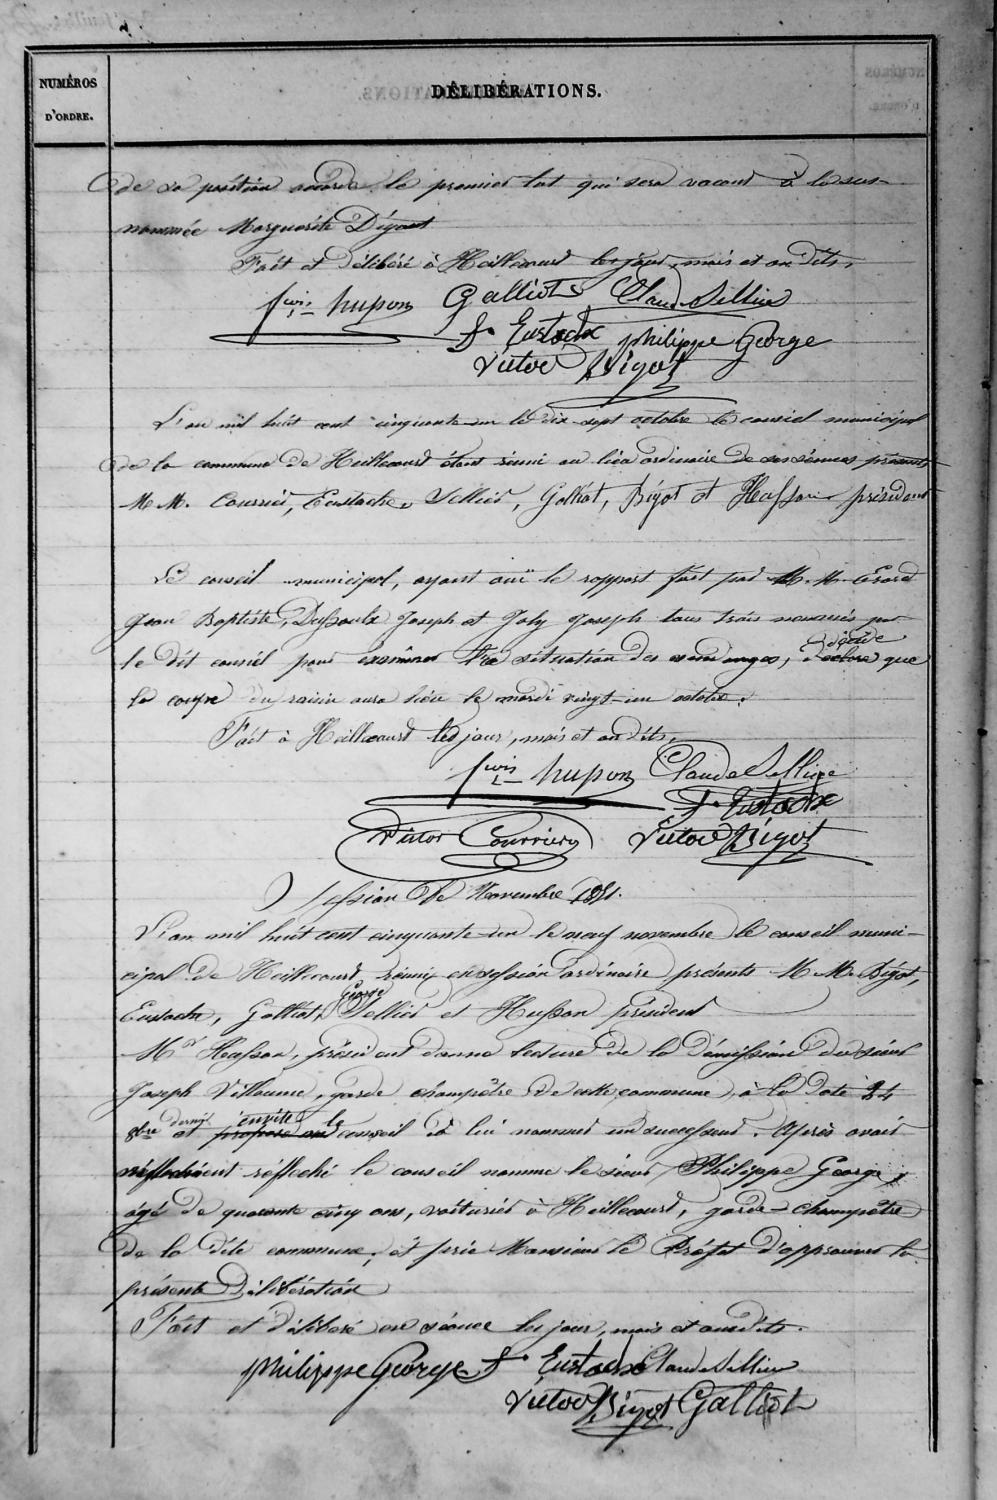 NUMÉROS
D'ORDRE.
DÉLIBÉRATIONS.
de sa position accorde le premier lot qui sera vacant à la sus-
nommée Marguerite Digout
Fait et délibéré à Heillecourt les jour, mois et an dits,
fcois hupon Galliot Claude Sellier
F. Eustache philippe George
Victor Bigot
L'an mil huit cent cinquante un le dix sept octobre le conseil municipal
de la commune de Heillecourt étant réuni au lieu ordinaire de ses séances présents
M. M. Courrier, Eustache, Sellier, Galliot, Bigot et Husson président
Le conseil municipal, ayant ouï le rapport fait par M. M. Gérard
Jean Baptiste, Dussoulx Joseph et Joly Joseph tous trois nommés par
le dit conseil pour examiner la situation des vendanges, déclare décide que
la coupe du raisin aura lieu le mardi vingt un octobre.
Fait à Heillecourt les jour, mois et an dits,
fcois hupon Claude Sellier
F. Eustache
Victor Courrier Victor Bigot
Session de Novembre 1851.
L'an mil huit cent cinquante un le neuf novembre le conseil muni-
cipal de Heillecourt réuni en session ordinaire présents M. M. Bigot,
Eustache, Galliot, George Sellier et Husson président
Mr Husson, président donne lecture de la démission du sieur
Joseph Villaume, garde champêtre de cette commune, à la date 24
8bre dernier et propose au invite le conseil à lui nommer un successeur. Après avoir
réfléchi le conseil nomme le sieur Philippe George,
âgé de quarante cinq ans, voiturier à Heillecourt, garde-champêtre
de la dite commune, et prie Monsieur le Préfet d'approuver la
présente Délibération
Fait et délibéré en séance les jour, mois et an dits.
philippe George F. Eustache Claude Sellier
Victor Bigot Galliot